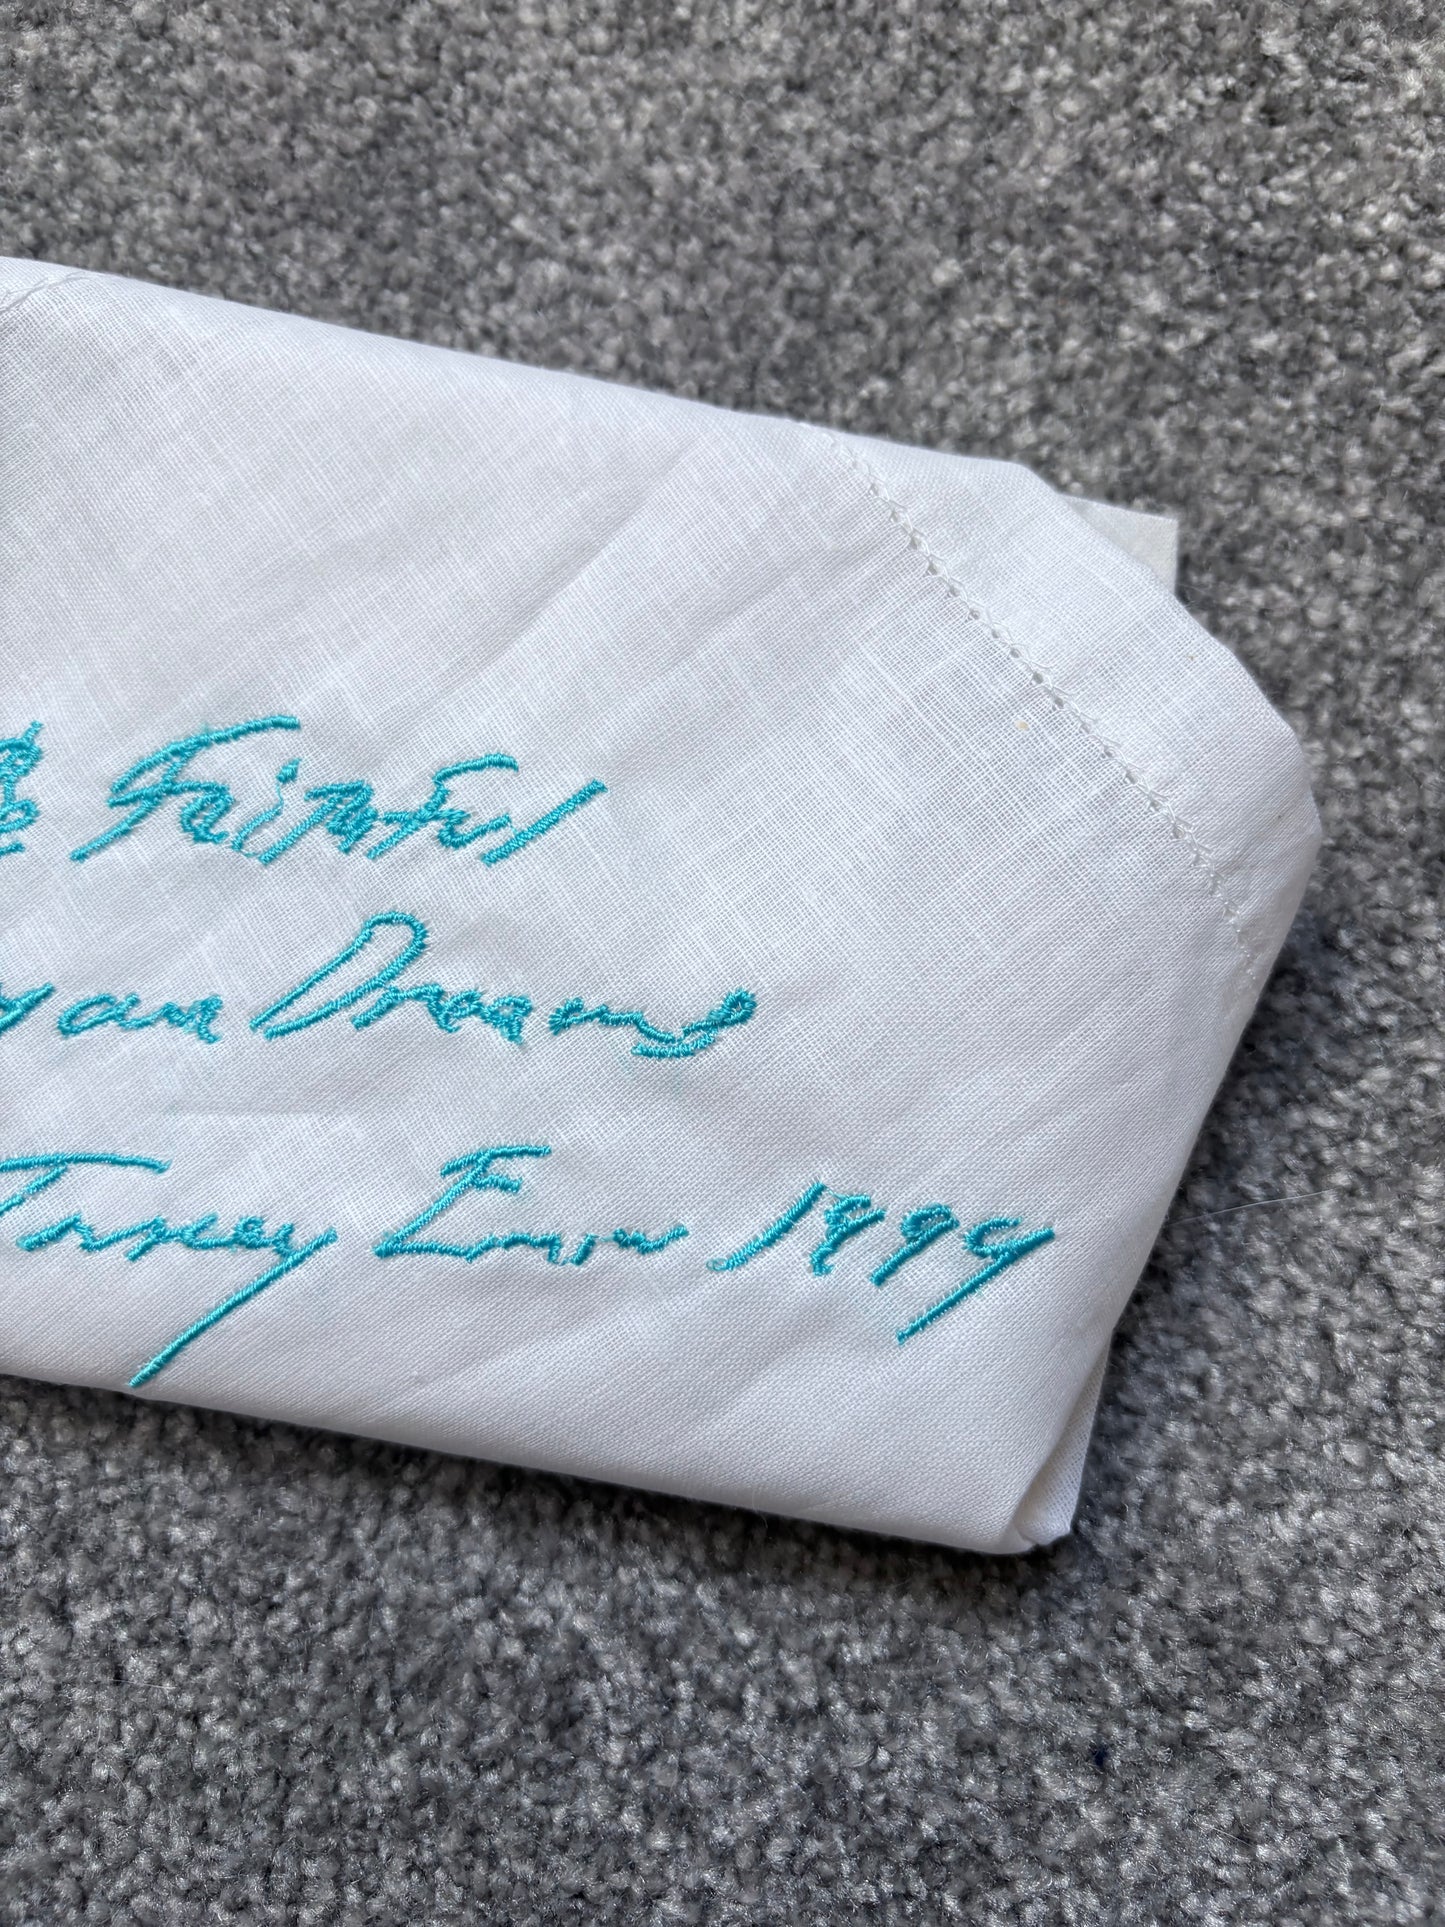 & Faithful
your Dreams
Tracey Emin 1999